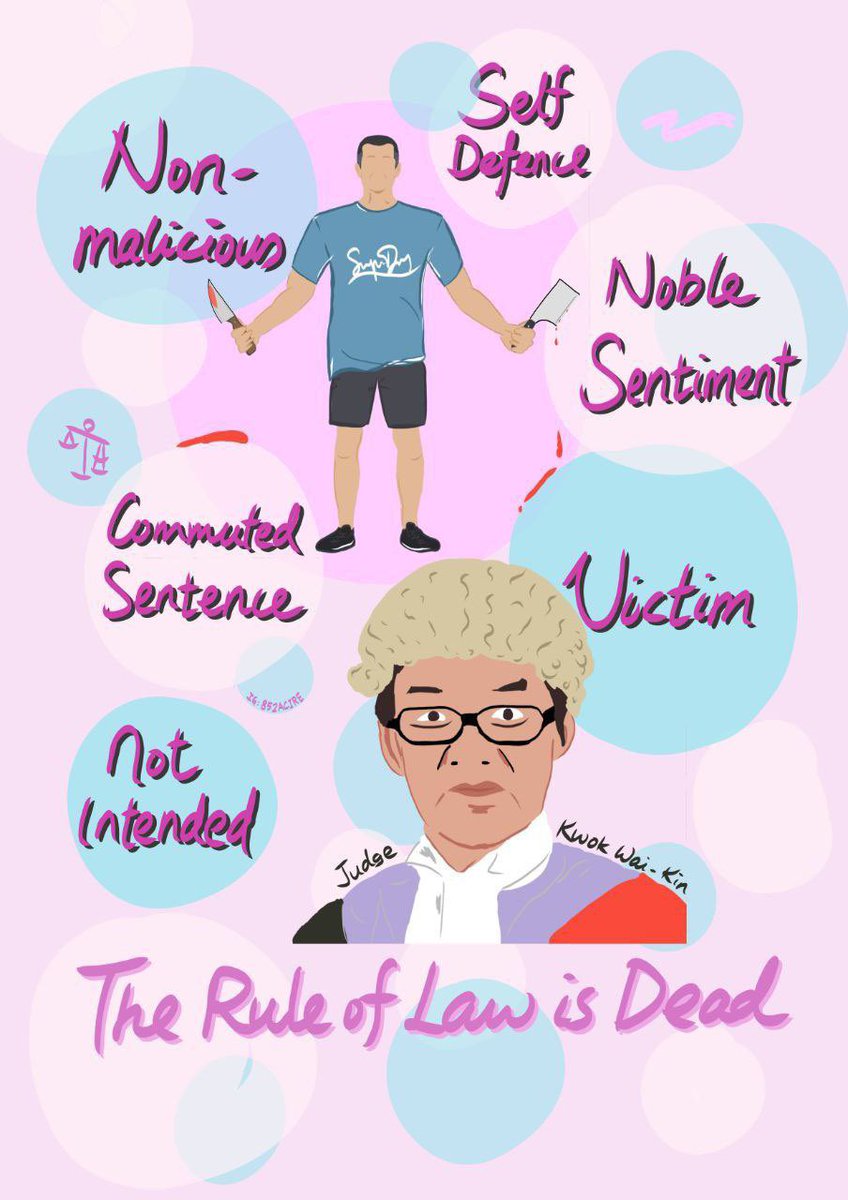 Self
Defence
Non-
malicious
SuperDry
Noble
Sentiment
Commuted
Sentence
Victim
IG:852ACIRE
Not
Intended
Judge
Kwok Wai-Kin
The Rule of Law is Dead